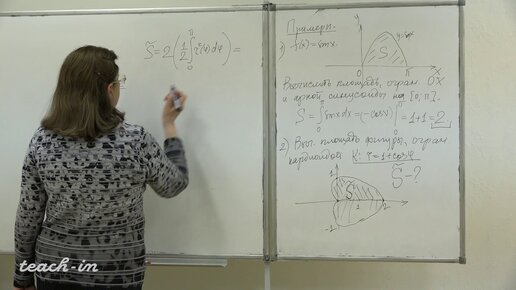 S̃ = 2(1/2 ∫₀^π r²(φ)dφ) =
Примеры.
1) f(x)=sin x.
y=sin x
S
0
π
Вычислить площадь, огран. OX
и аркой синусоиды на [0; π].
S = ∫₀^π sin x dx = (-cos x)|₀^π = 1+1 = 2
2) Выч. площадь фигуры, огран.
кардиоидой K: r = 1+cos φ
S̃ - ?
1
S
1
2
-1
teach-in